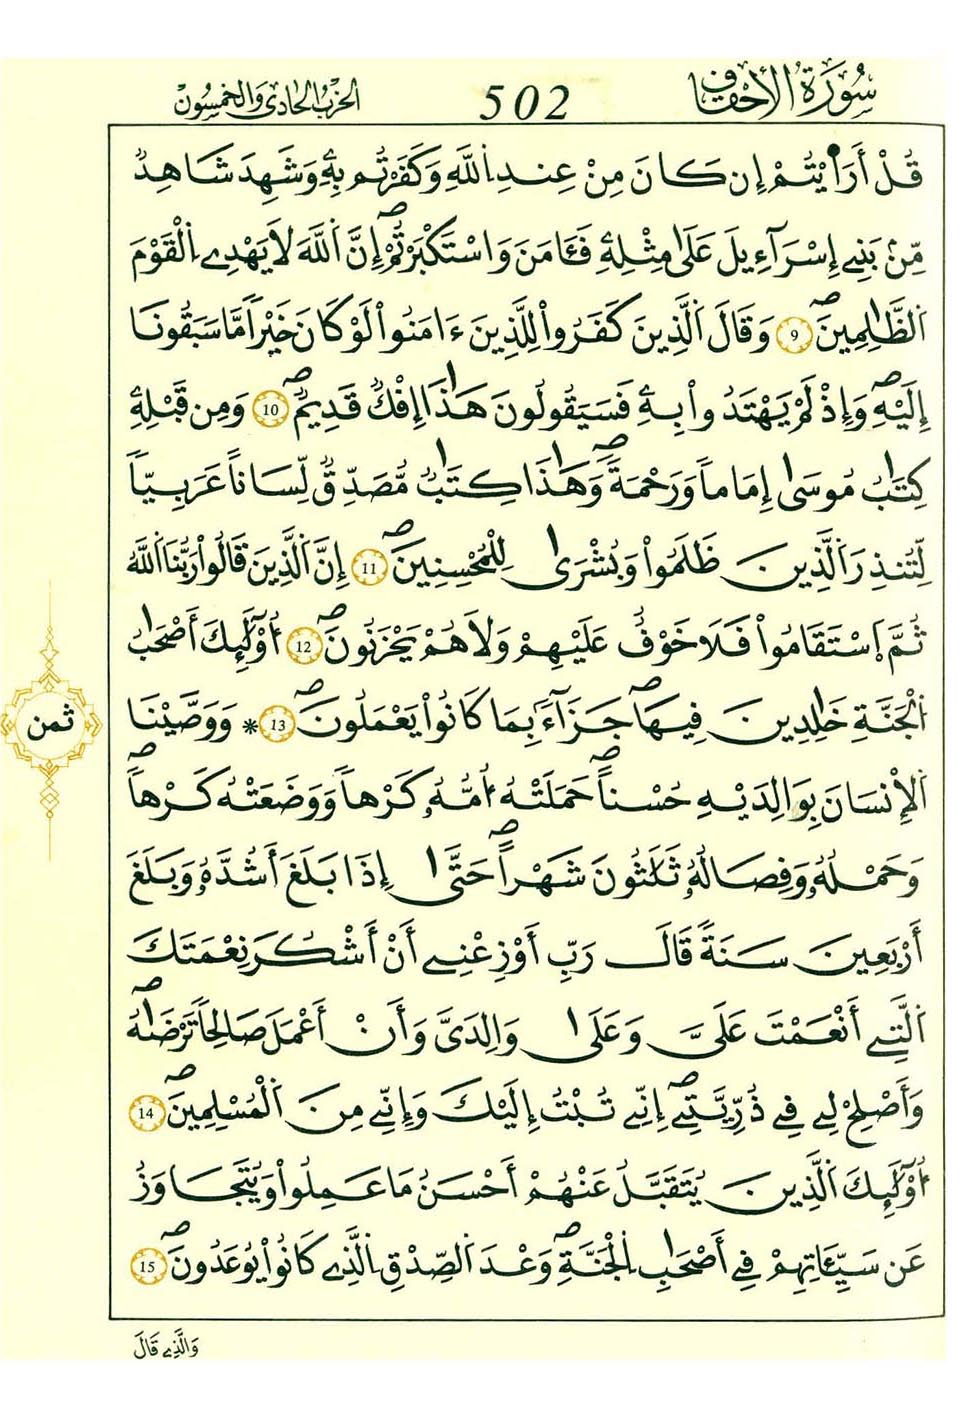 سُورَةُ الأَحْقَافِ 502 الحِزْبُ الحَادِي وَالخَمْسُونَ
قُلْ أَرَٰٓيْتُمُۥٓ إِن كَانَ مِنْ عِندِ اِ۬للَّهِ وَكَفَرْتُم بِهِۦ وَشَهِدَ شَاهِدٞ
مِّنۢ بَنِےٓ إِسْرَآءِيلَ عَلَىٰ مِثْلِهِۦ فَـَٔامَنَ وَاسْتَكْبَرْتُمُۥٓۖ إِنَّ اَ۬للَّهَ لَا يَهْدِے اِ۬لْقَوْمَ
اَ۬لظَّٰلِمِينَۖ 9 وَقَالَ اَ۬لَّذِينَ كَفَرُواْ لِلَّذِينَ ءَامَنُواْ لَوْ كَانَ خَيْراٗ مَّا سَبَقُونَآ
إِلَيْهِۖ وَإِذْ لَمْ يَهْتَدُواْ بِهِۦ فَسَيَقُولُونَ هَٰذَآ إِفْكٞ قَدِيمٞۖ 10 وَمِن قَبْلِهِۦ
كِتَٰبُ مُوسَىٰٓ إِمَاماٗ وَرَحْمَةٗۖ وَهَٰذَا كِتَٰبٞ مُّصَدِّقٞ لِّسَاناً عَرَبِيّاٗ
لِّتُنذِرَ اَ۬لَّذِينَ ظَلَمُواْ وَبُشْرَىٰ لِلْمُحْسِنِينَۖ 11 إِنَّ اَ۬لَّذِينَ قَالُواْ رَبُّنَا اَ۬للَّهُ
ثُمَّ اَ۪سْتَقَٰمُواْ فَلَا خَوْفٌ عَلَيْهِمْ وَلَا هُمْ يَحْزَنُونَۖ 12 أُوْلَٰٓئِكَ أَصْحَٰبُ
اُ۬لْجَنَّةِ خَٰلِدِينَ فِيهَاۖ جَزَآءَۢ بِمَا كَانُواْ يَعْمَلُونَۖ 13 * وَوَصَّيْنَا
ثمن
اَ۬لْإِنْسَانَ بِوَٰلِدَيْهِ حُسْناًۖ حَمَلَتْهُ أُمُّهُۥ كَرْهاٗ وَوَضَعَتْهُ كَرْهاٗۖ
وَحَمْلُهُۥ وَفِصَالُهُۥ ثَلَٰثُونَ شَهْراًۖ حَتَّىٰٓ إِذَا بَلَغَ أَشُدَّهُۥ وَبَلَغَ
أَرْبَعِينَ سَنَةٗ قَالَ رَبِّ أَوْزِعْنِےٓ أَنَ اَشْكُرَ نِعْمَتَكَ
اَ۬لتِےٓ أَنْعَمْتَ عَلَيَّ وَعَلَىٰ وَٰلِدَيَّ وَأَنَ اَعْمَلَ صَٰلِحاٗ تَرْضَىٰهُۖ
وَأَصْلِحْ لِے فِے ذُرِّيَّتِےٓۖ إِنِّے تُبْتُ إِلَيْكَ وَإِنِّے مِنَ اَ۬لْمُسْلِمِينَۖ 14
أُوْلَٰٓئِكَ اَ۬لَّذِينَ يُتَقَبَّلُ عَنْهُمُۥٓ أَحْسَنُ مَا عَمِلُواْ وَيُتَجَاوَزُ
عَن سَيِّـَٔاتِهِمْ فِےٓ أَصْحَٰبِ اِ۬لْجَنَّةِۖ وَعْدَ اَ۬لصِّدْقِ اِ۬لَّذِے كَانُواْ يُوعَدُونَۖ 15
وَالَّذِے قَالَ